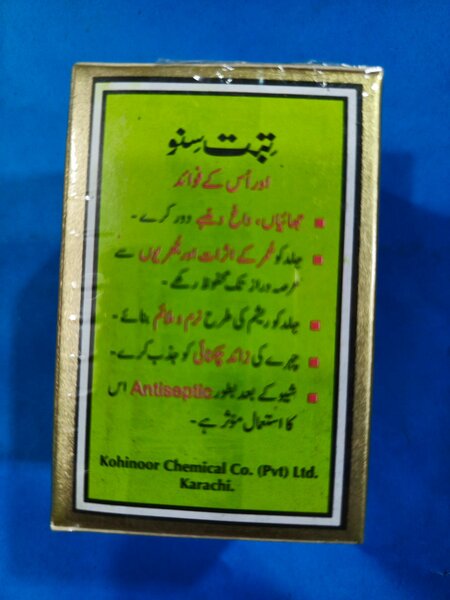 تِبت سِنو
اور اُس کے فوائد
چھائیاں، داغ دھبے دور کرے۔
جلد کو عمر کے اثرات اور جھریوں سے
عرصہ دراز تک محفوظ رکھے۔
جلد کو ریشم کی طرح نرم و ملائم بنائے۔
چہرے کی زائد چکنائی کو جذب کرے۔
شیو کے بعد بطور Antiseptic اس
کا استعمال مؤثر ہے۔
Kohinoor Chemical Co. (Pvt) Ltd.
Karachi.